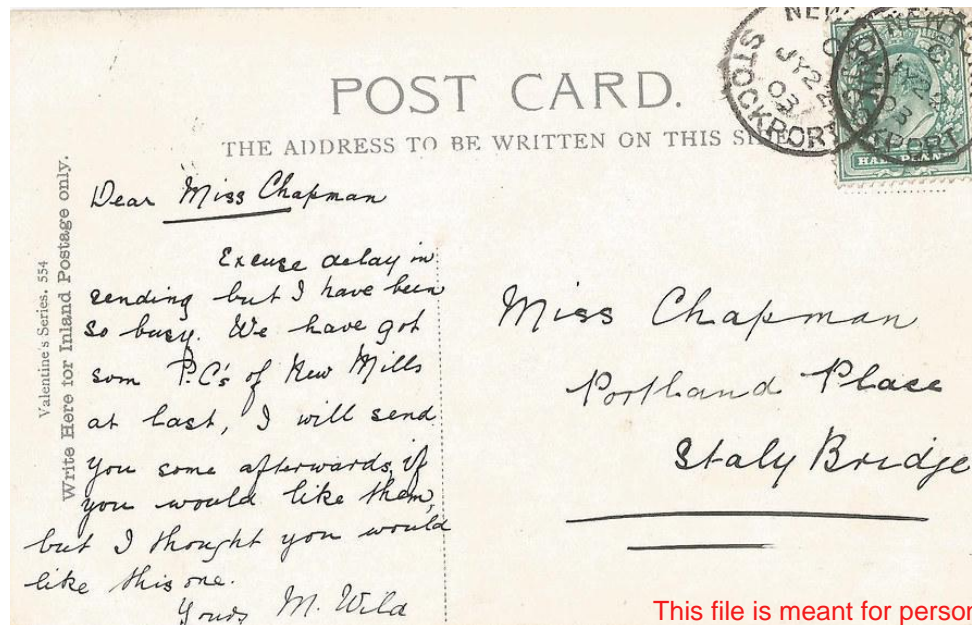 POST CARD.
THE ADDRESS TO BE WRITTEN ON THIS SIDE
NEW
STOCKPORT
JY 2
03
NEWTO
C
JY 22
03
KPORT
HALF PENNY
Valentine's Series. 554
Write Here for Inland Postage only.
Dear Miss Chapman
Excuse delay in
sending but I have been
so busy. We have got
som P.C's of New Mills
at last, I will send
you some afterwards, if
you would like them,
but I thought you would
like this one.
Yours M. Wild
Miss Chapman
Portland Place
Staly Bridge
This file is meant for person